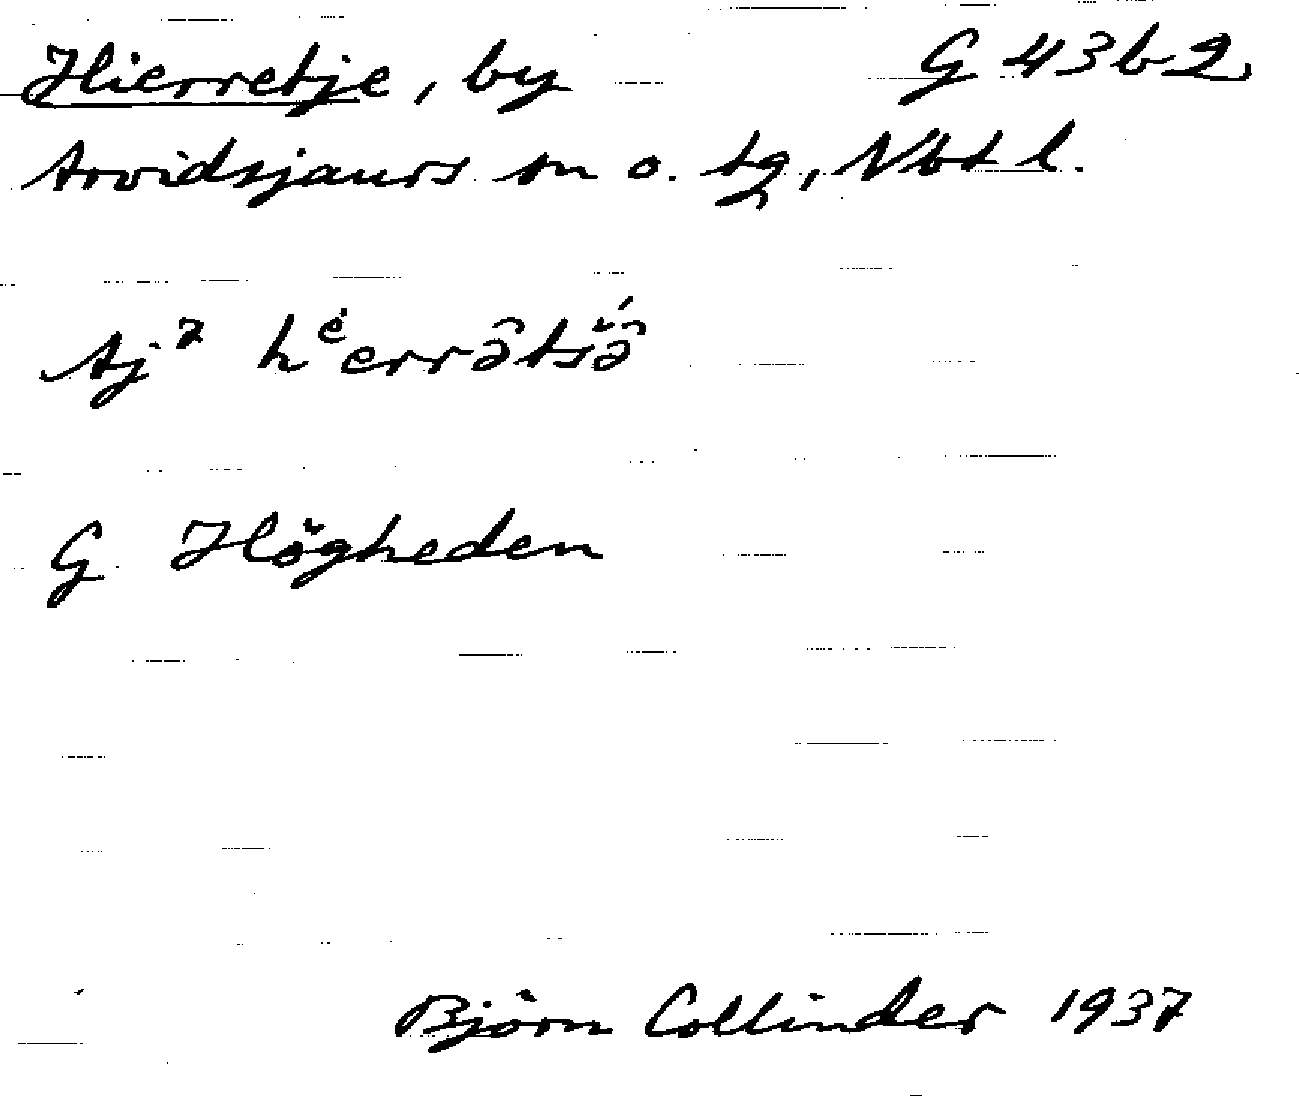 Hierretje, by G 43b2,
Arvidsjaurs sn o. tg, Nbt l.
Aj⁷ hᵉ̇errə̂tšə̂́
G Högheden
Björn Collinder 1937